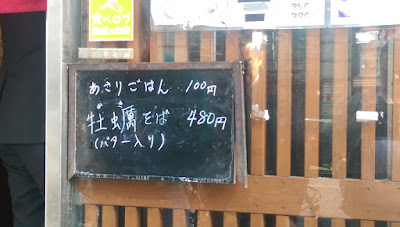 食べログ
あさりごはん 100円
がき
牡蠣そば 480円
(バター入り)